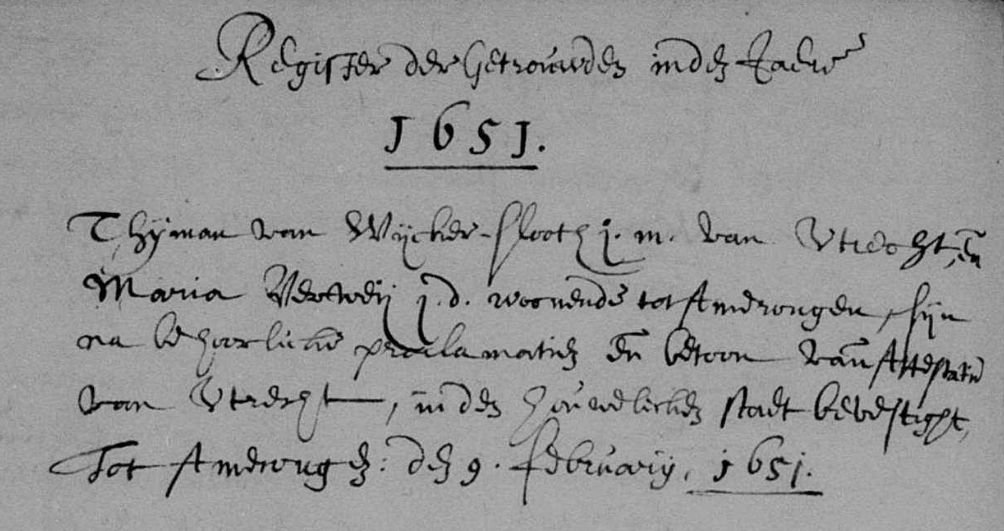 Register der Getrouwden inden Jaere
1651.
Thÿman van Wÿcker-slooth j. m. van Vtrecht, en
Maria Verweÿ j. d. woonende tot Amerongen, sijn
na behoorlicke proclamatien en betoon van Attestatie
van Vtrecht, in den houwelicken staet bevestight,
Tot Amerongen: den 9. februarij. 1651.